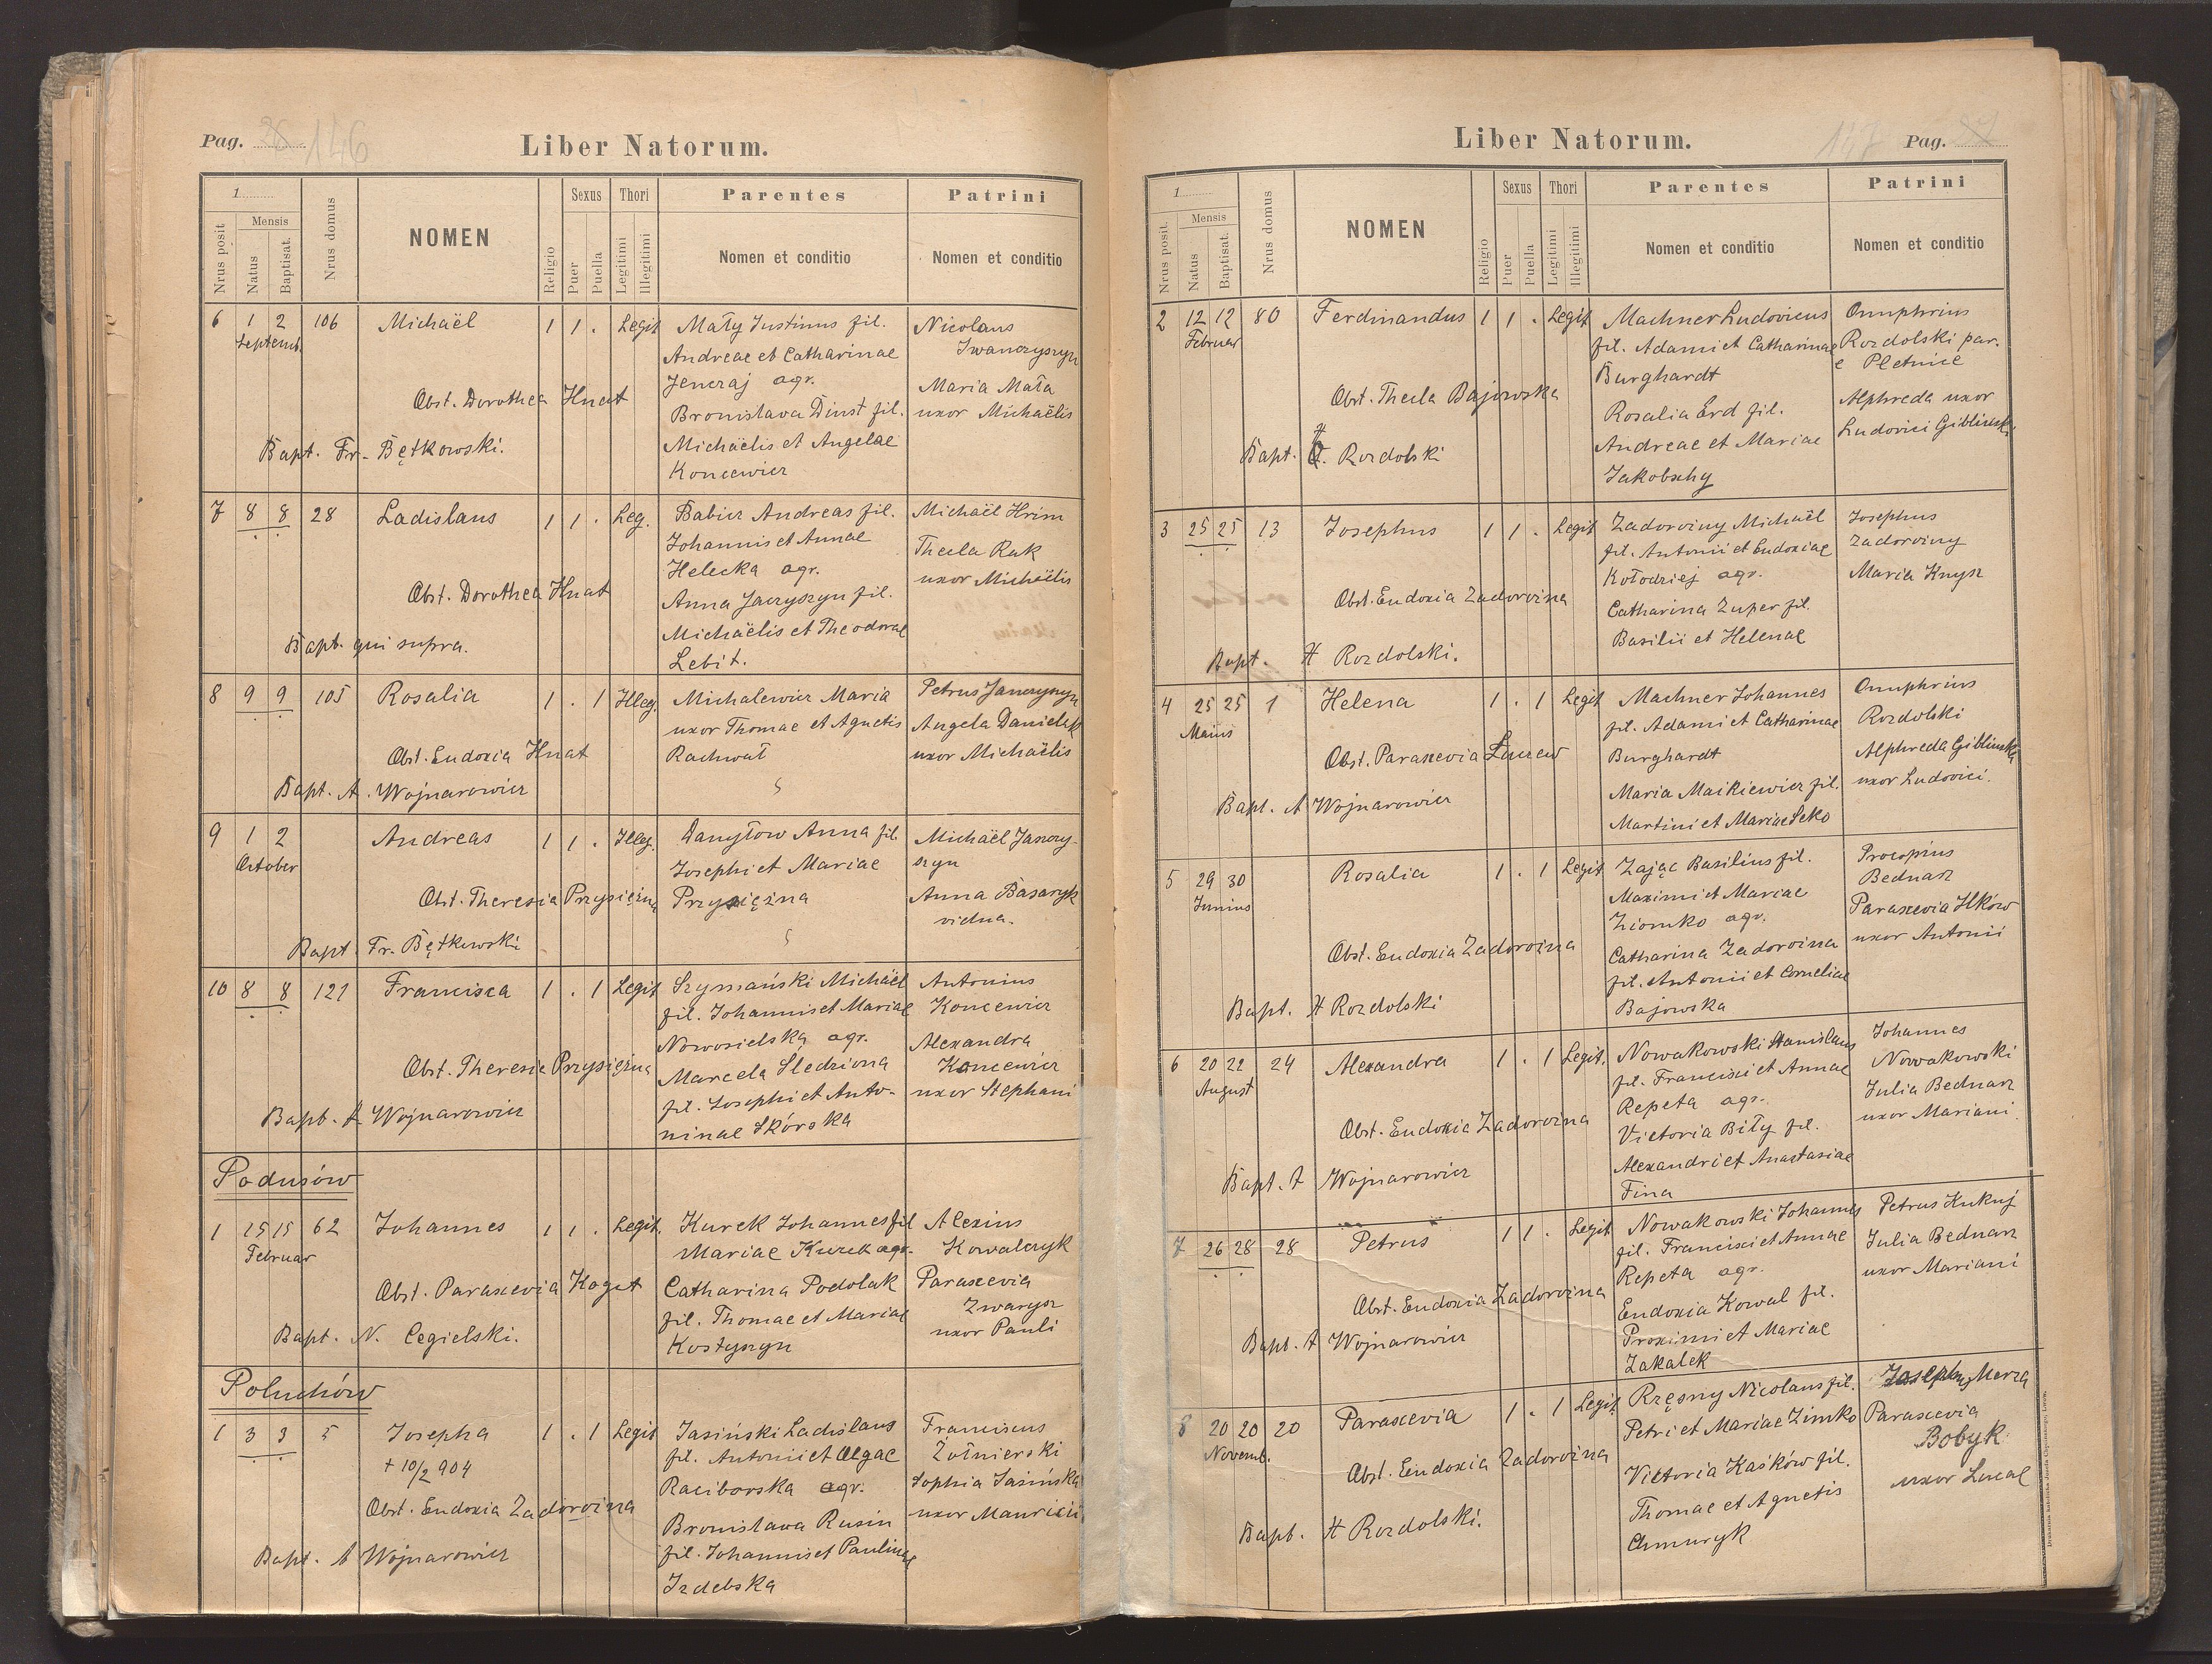 Pag. 36 146
Liber Natorum.
1
Nrus posit
Mensis
Natus
Baptisat.
Nrus domus
NOMEN
Religio
Sexus
Puer
Puella
Thori
Legitimi
Illegitimi
Parentes
Nomen et conditio
Patrini
Nomen et conditio
6 1 2 106 Michaël 1 1 . Legit
Septemb.
Obst. Dorothea Hnat
Bapt. Fr. Bętkowski.
Mały Justinus fil.
Andreae et Catharinae
Jencraj agr.
Bronislava Dinst fil.
Michaëlis et Angelae
Koncewicz
Nicolaus
Iwanczyszyn
Maria Mała
uxor Michaëlis
7 8 8 28 Ladislaus 1 1 . Leg.
Obst. Dorothea Hnat
Bapt. qui supra.
Babicz Andreas fil.
Johannis et Annae
Helecka agr.
Anna Jaczyszyn fil.
Michaëlis et Theodorae
Lebit.
Michaël Hrim
Thecla Rak
uxor Michaëlis
8 9 9 105 Rosalia 1 . 1 Illeg.
Obst. Eudoxia Hnat
Bapt. A. Wojnarowicz
Michalewicz Maria
uxor Thomae et Agnetis
Rachwał
Petrus Janczyszyn
Angela Danielak
uxor Michaëlis
9 1 2 Andreas 1 1 . Illeg.
October
Obst. Theresia Przysiężna
Bapt. Fr. Bętkowski
Danyłow Anna fil.
Josephi et Mariae
Przysiężna
Michaël Janczy-
szyn
Anna Basaryk
vidua.
10 8 8 121 Francisca 1 . 1 Legit
Obst. Theresia Przysiężna
Bapt. A Wojnarowicz
Szymański Michaël
fil. Johannis et Mariae
Nowosielska agr.
Marcela Śledziona
fil. Josephi et Anto-
ninae Skórska
Antonius
Koncewicz
Alexandra
Koncewicz
uxor Stephani
Podusów
1 15 15 62 Johannes 1 1 . Legit.
Februar
Obst. Parascevia Kogut
Bapt. N. Cegielski.
Kurek Johannes fil
Mariae Kurek agr.
Catharina Podolak
fil. Thomae et Mariae
Kostyszyn
Alexius
Kowalczyk
Parascevia
Zwarycz
uxor Pauli
Poluchów
1 3 3 5 Josepha 1 . 1 Legit
+ 10/2 904
Obst. Eudoxia Zadorożna
Bapt. A Wojnarowicz
Jasiński Ladislaus
fil. Antonii et Olgae
Raciborska agr.
Bronislava Rusin
fil. Johannis et Paulinae
Izdebska
Franciscus
Żołnierski
Sophia Jasińska
uxor Mauricii.
Liber Natorum.
Pag. 37
1
Nrus posit.
Mensis
Natus
Baptisat.
Nrus domus
NOMEN
Religio
Sexus
Puer
Puella
Thori
Legitimi
Illegitimi
Parentes
Nomen et conditio
Patrini
Nomen et conditio
2 12 12 80 Ferdinandus 1 1 . Legit
Februar
Obst. Thecla Bajowska
Bapt. H. Rozdolski
Machner Ludovicus
fil. Adami et Catharinae
Burghardt
Rosalia Erd fil.
Andreae et Mariae
Jakobschy
Onuphrius
Rozdolski par.
e Pletnice
Alphreda uxor
Ludovici Giblinski
3 25 25 13 Josephus 1 1 . Legit
Obst. Eudoxia Zadorożna
Bapt. H Rozdolski.
Zadorożny Michaël
fil. Antonii et Eudoxiae
Kołodziej agr.
Catharina Zuper fil.
Basilii et Helenae
Josephus
Zadorożny
Maria Knysz
4 25 25 1 Helena 1 . 1 Legit
Maius
Obst. Parascevia Lucew
Bapt. A Wojnarowicz
Machner Johannes
fil. Adami et Catharinae
Burghardt
Maria Maikiewicz fil.
Martini et Mariae Seko
Onuphrius
Rozdolski
Alphreda Giblinska
uxor Ludovici.
5 29 30 Rosalia 1 . 1 Legit
Junius
Obst. Eudoxia Zadorożna
Bapt. H Rozdolski
Zając Basilius fil.
Maximi et Mariae
Ziomko agr.
Catharina Zadorożna
fil. Antonii et Corneliae
Bajowska
Procopius
Bednarz
Parascevia Ilków
uxor Antonii
6 20 22 24 Alexandra 1 . 1 Legit.
August
Obst. Eudoxia Zadorożna
Bapt. A Wojnarowicz
Nowakowski Stanislaus
fil. Francisci et Annae
Repeta agr.
Victoria Biły fil.
Alexandri et Anastasiae
Fina
Johannes
Nowakowski
Julia Bednarz
uxor Mariani.
7 26 28 28 Petrus 1 1 . Legit
Obst. Eudoxia Zadorożna
Bapt. A Wojnarowicz
Nowakowski Johannes
fil. Francisci et Annae
Repeta agr.
Eudoxia Kowal fil.
Proximi et Mariae
Zakalek
Petrus Kukuj
Julia Bednarz
uxor Mariani
8 20 20 20 Parascevia 1 . 1 Legit
Novemb.
Obst. Eudoxia Zadorożna
Bapt. H Rozdolski.
Rzęsny Nicolaus fil.
Petri et Mariae Zimko
Victoria Kaśków fil.
Thomae et Agnetis
Chmuryk
Josephus Merza
Parascevia
Bobyk
uxor Lucae